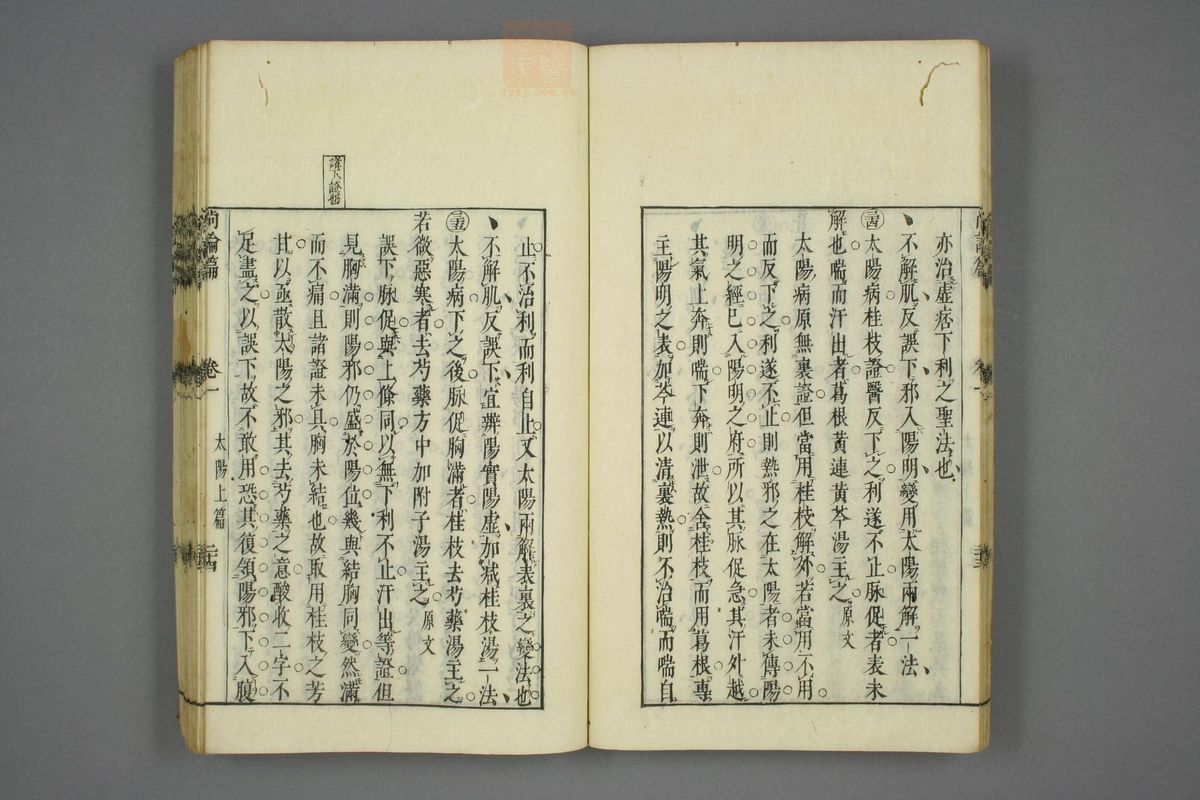 亦治虛痞下利之聖法也
不解肌反誤下邪入陽明變用太陽兩解一法
太陽病桂枝證醫反下之利遂不止脉促者表未
解也喘而汗出者葛根黃連黃芩湯主之原文
太陽病原無裏證但當用桂枝解外若當用不用
而反下之利遂不止則熱邪之在太陽者未傳陽
明之經已入陽明之府所以其脉促急其汗外越
其氣上奔則喘下奔則泄故舍桂枝而用葛根專
主陽明之表加芩連以清裏熱則不治喘而喘自
止不治利而利自止又太陽兩解表裏之變法也
不解肌反誤下宜辨陽實陽虛加減桂枝湯一法
太陽病下之後脉促胸滿者桂枝去芍藥湯主之
若微惡寒者去芍藥方中加附子湯主之原文
誤下脉促與上條同以無下利不止汗出等證但
見胸滿則陽邪仍盛於陽位幾與結胸同變然滿
而不痛且諸證未具胸未結也故取用桂枝之芳
甘以亟散太陽之邪其去芍藥之意酸收二字不
足盡之以誤下故不敢用恐其復領陽邪下入腹
尚論篇 卷一 太陽上篇
zysj.com.cn